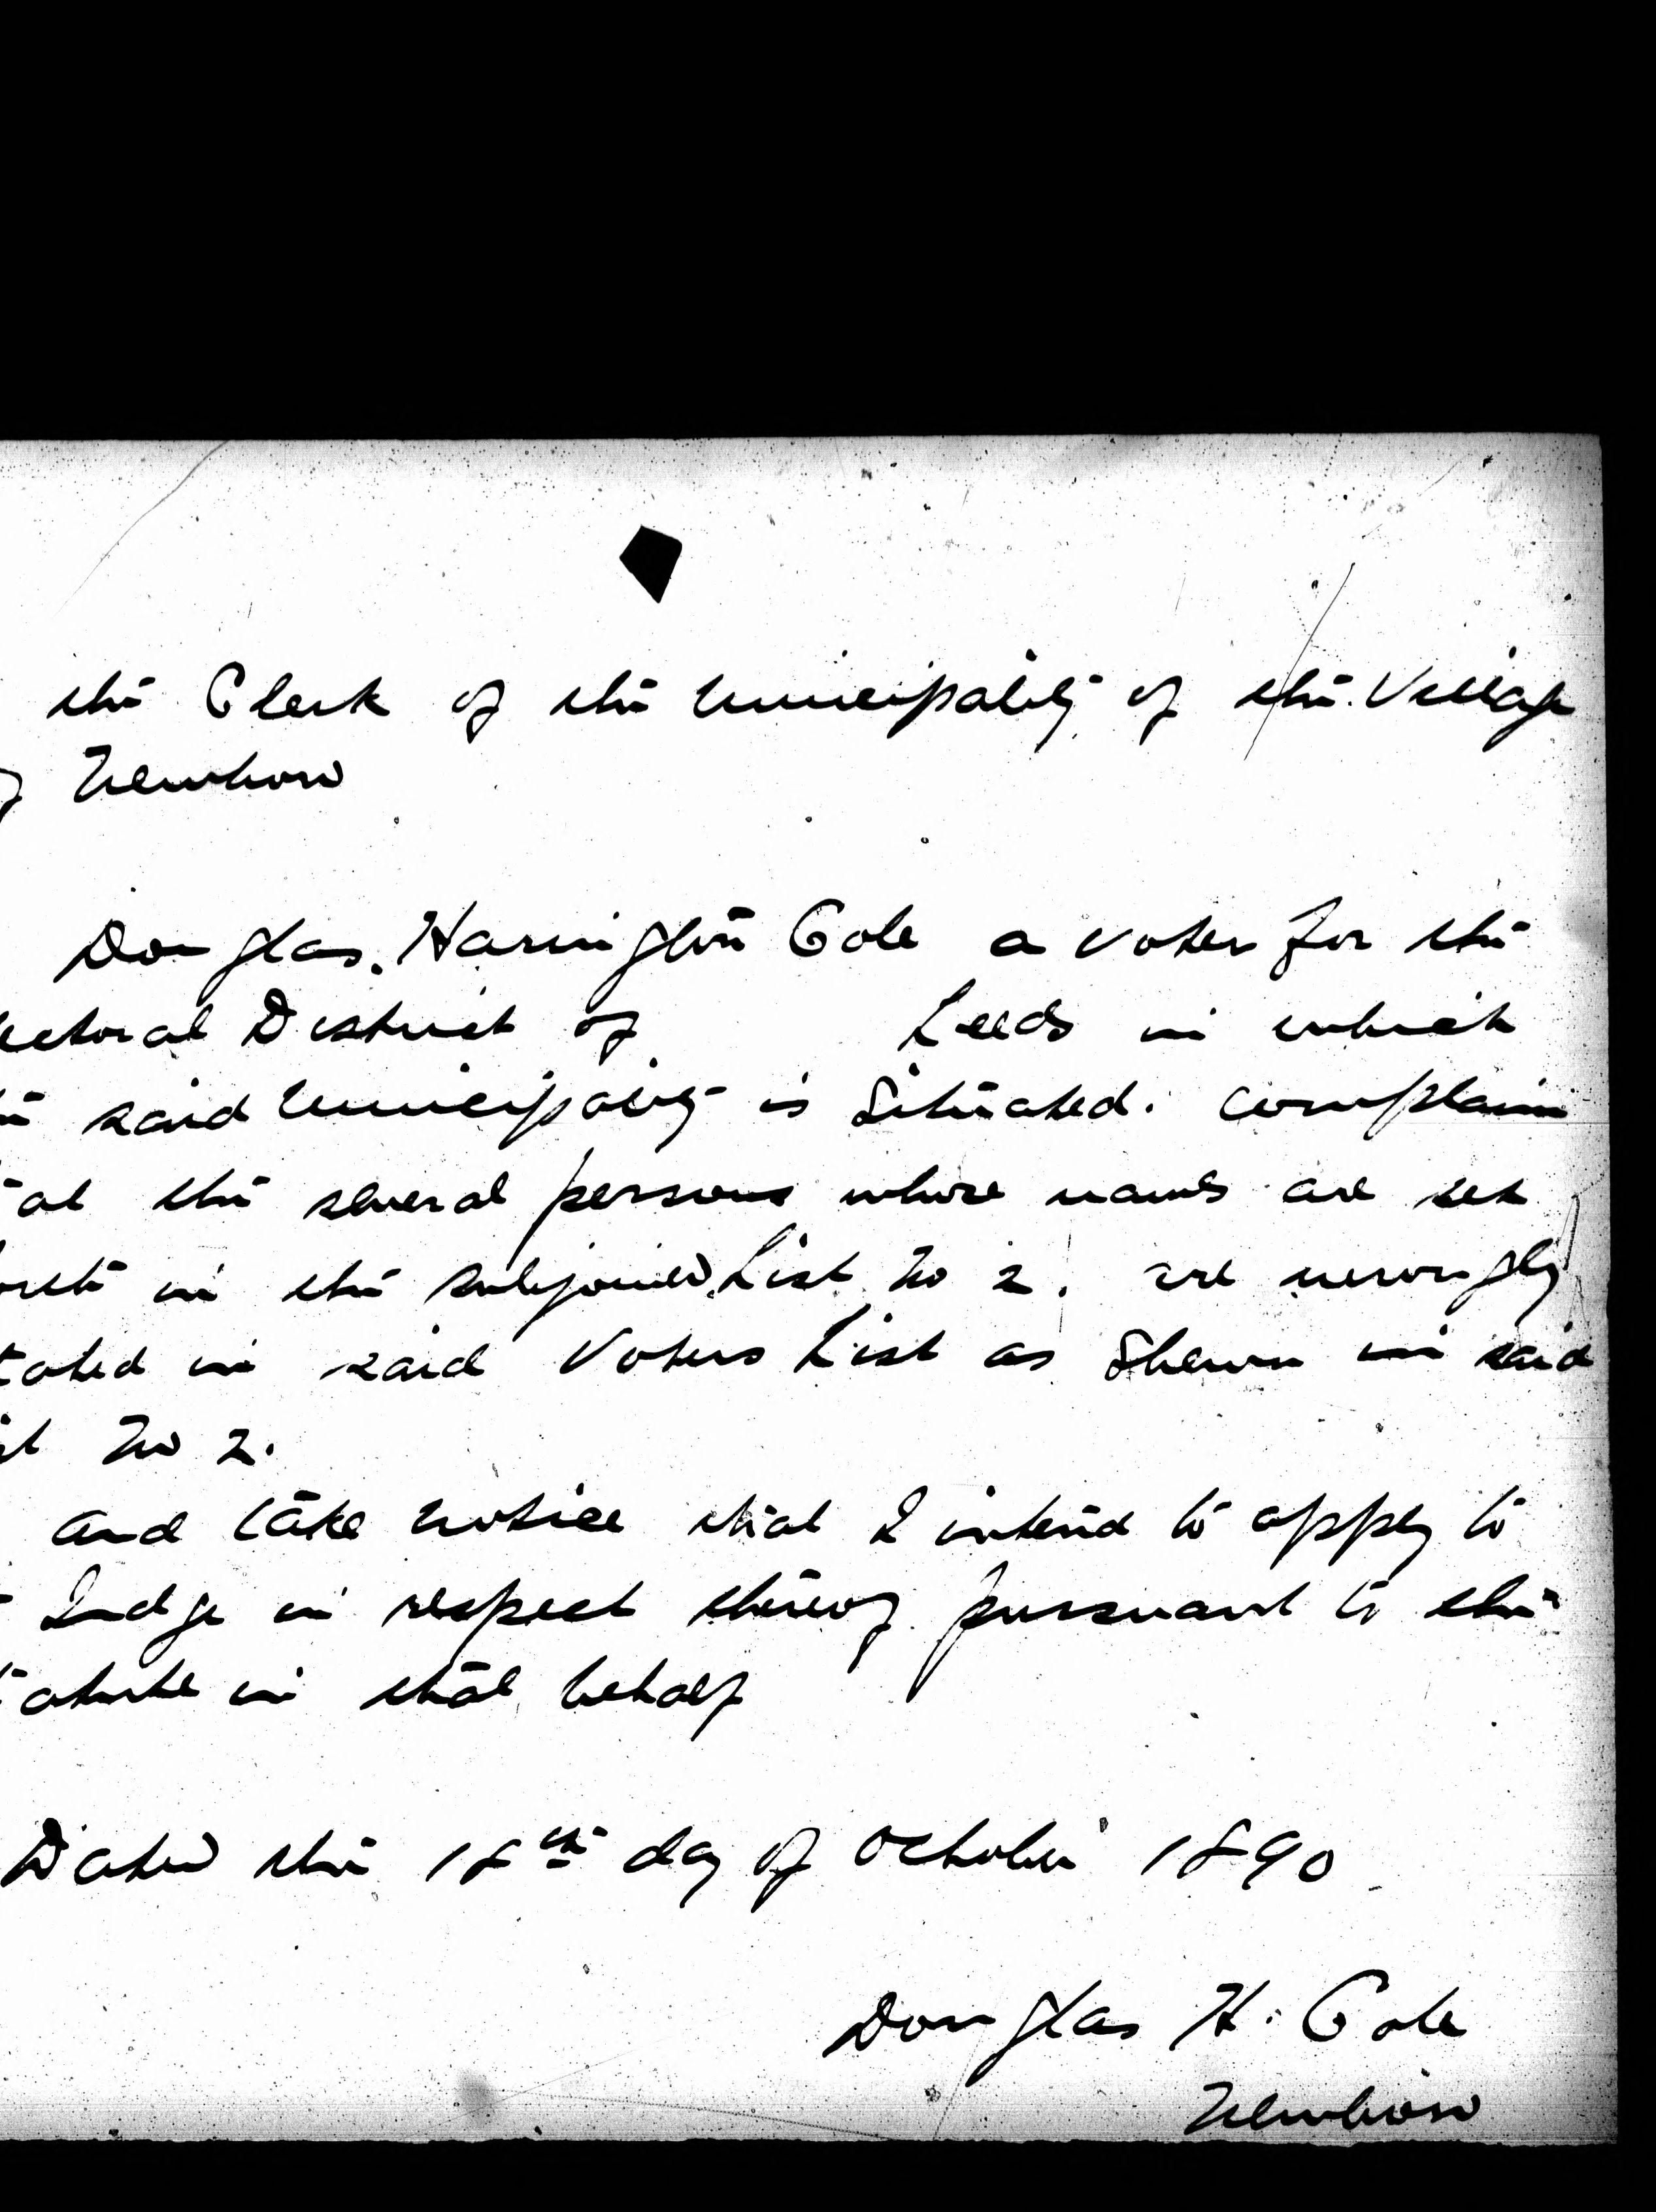 the Clerk of the Municipality of the Village
Newboro
Douglas Harrington Cole a voter for the
ectoral District of Leeds in which
said Municipality is Situated. complain
at the several persons whose names are set
in the subjoined List No 2. are wrongly
tated in said Voters List as Shewn in said
st No 2.
And take notice that I intend to apply to
Judge in respect thereof pursuant to the
tatute in that behalf
Dated this 18th day of October 1890
Douglas H. Cole
Newboro